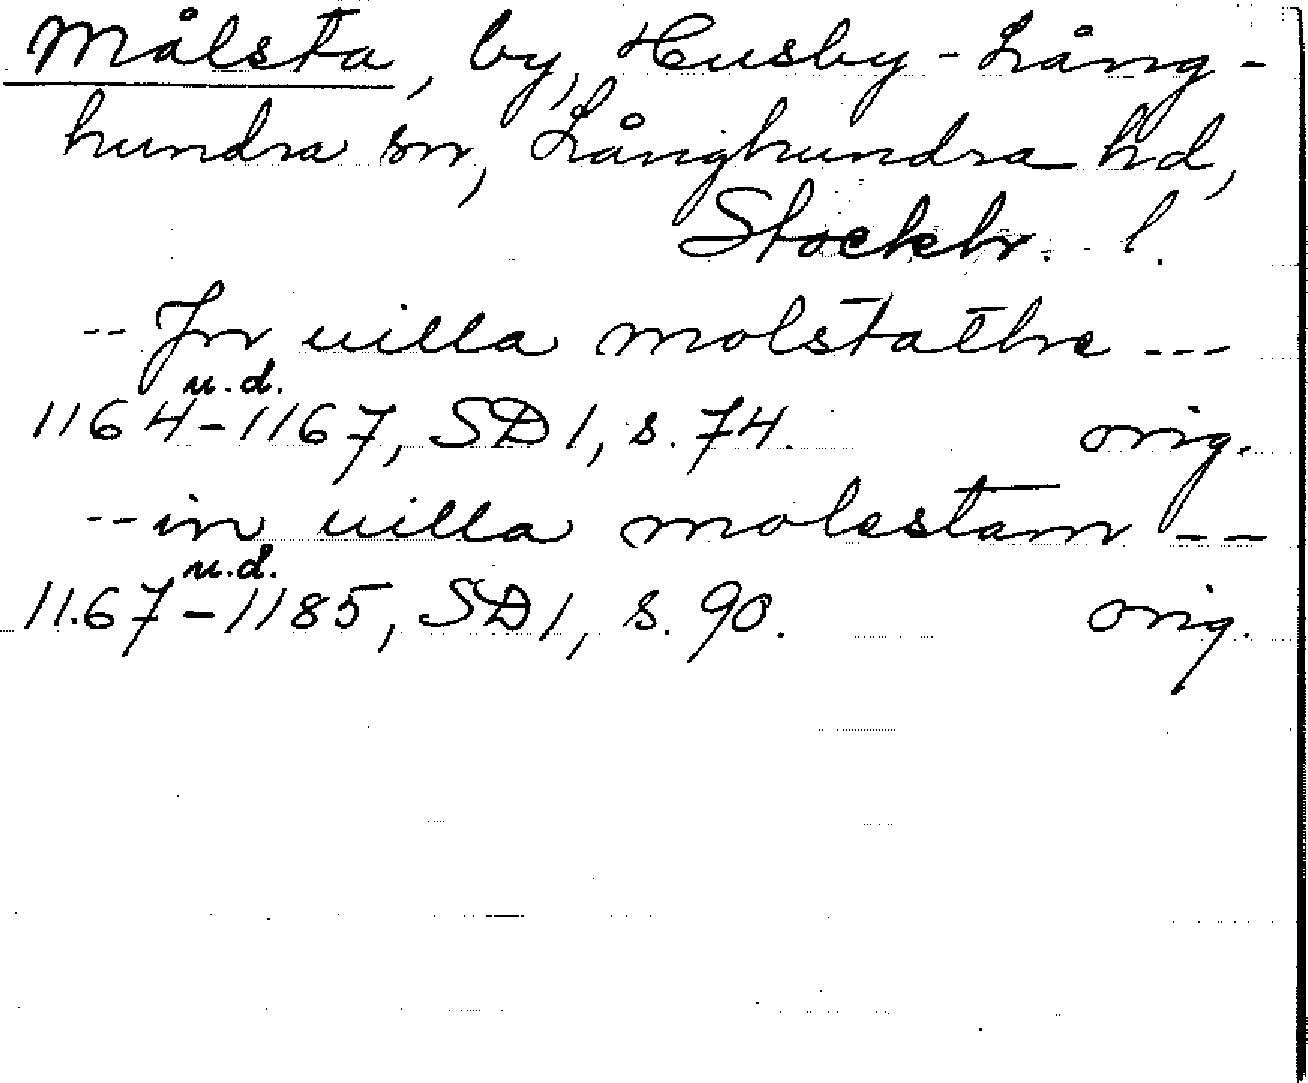 Målsta, by, Husby-Lång-
hundra sn, Långhundra hd,
Stockh. l.
-- Jn uilla molstathe ---
u.d.
1164-1167, SD 1, s. 74. orig.
-- in uilla molestam --
u.d.
1167-1185, SD 1, s. 90. orig.